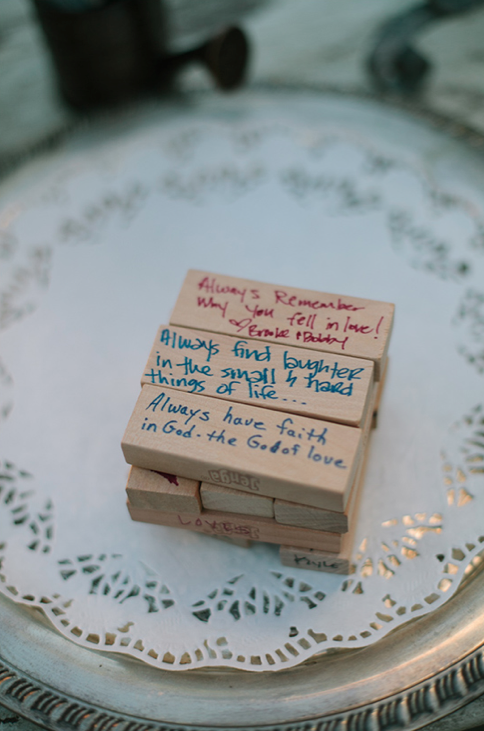 Always Remember
Why You fell in love!
♡ Brooke + Bobby
Always find laughter
in the small & hard
things of life...
Always have faith
in God - the God of love
Jenga
LOVE
Kylie